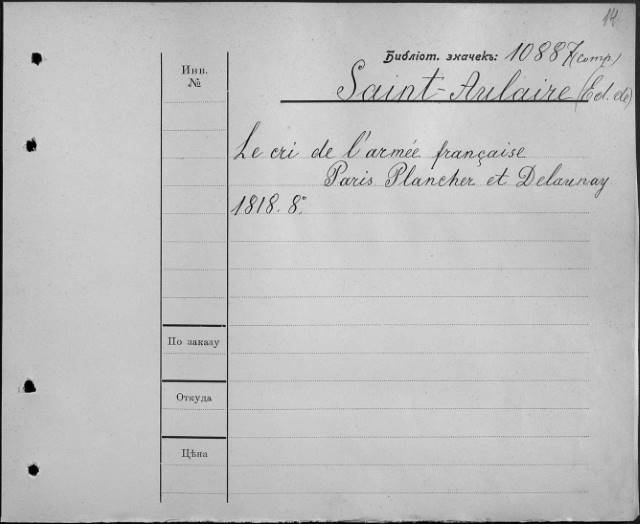 14
Библіот. значекъ: 10887 (comp.)
Инв.
№
Saint-Aulaire (Ed. de)
Le cri de l'armée française
Paris Plancher et Delaunay
1818. 8°.
По заказу
Откуда
Цѣна